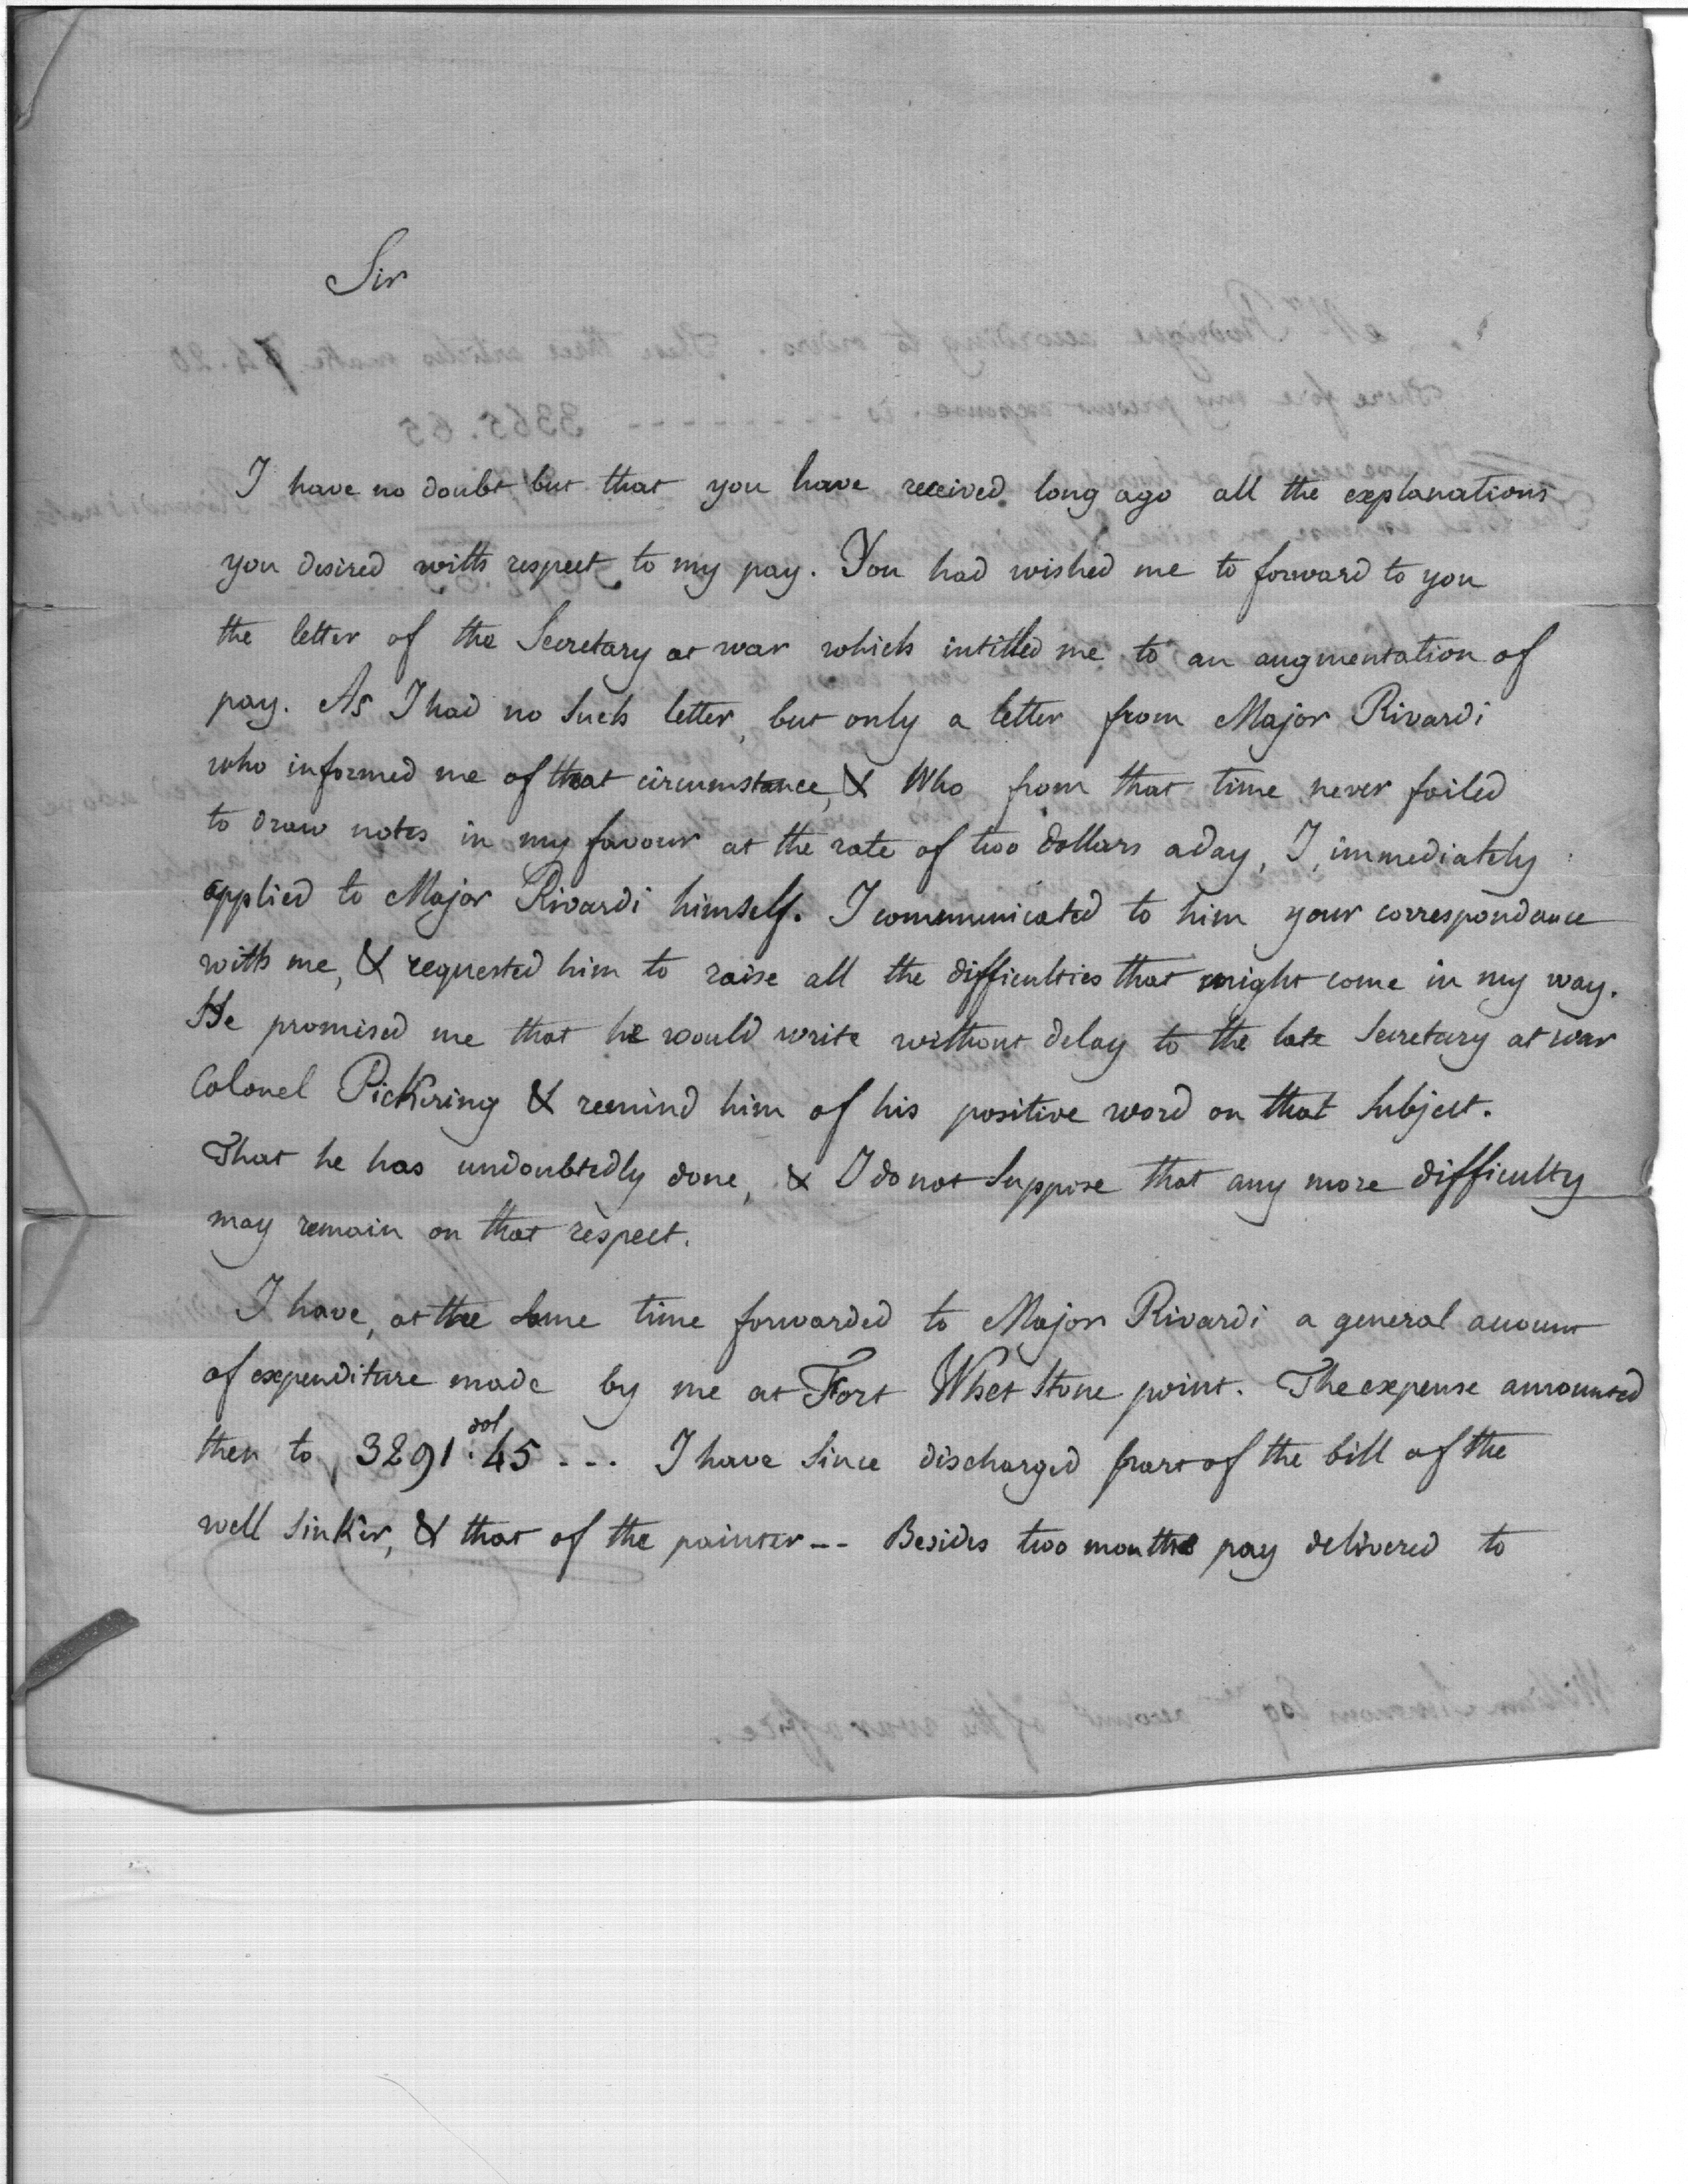 Sir
I have no doubt but that you have received long ago all the explanations
you desired with respect to my pay. You had wished me to forward to you
the letter of the Secretary at war which intitled me to an augmentation of
pay. As I had no such letter, but only a letter from Major Rivardi
who informed me of that circumstance, & Who from that time never failed
to draw notes in my favour at the rate of two dollars a day, I, immediately
applied to Major Rivardi himself. I communicated to him your correspondance
with me, & requested him to raise all the difficulties that might come in my way.
He promised me that he would write without delay to the late Secretary at war
Colonel Pickering & remind him of his positive word on that Subject.
That he has undoubtedly done, & I do not Suppose that any more difficulty
may remain on that respect.
I have, at the Same time forwarded to Major Rivardi a general account
of expenditure made by me at Fort Whet Stone point. The expense amounted
then to 3291.dol 45 --. I have Since discharged part of the bill of the
well Sinker, & that of the painter -- Besides two months pay delivered to